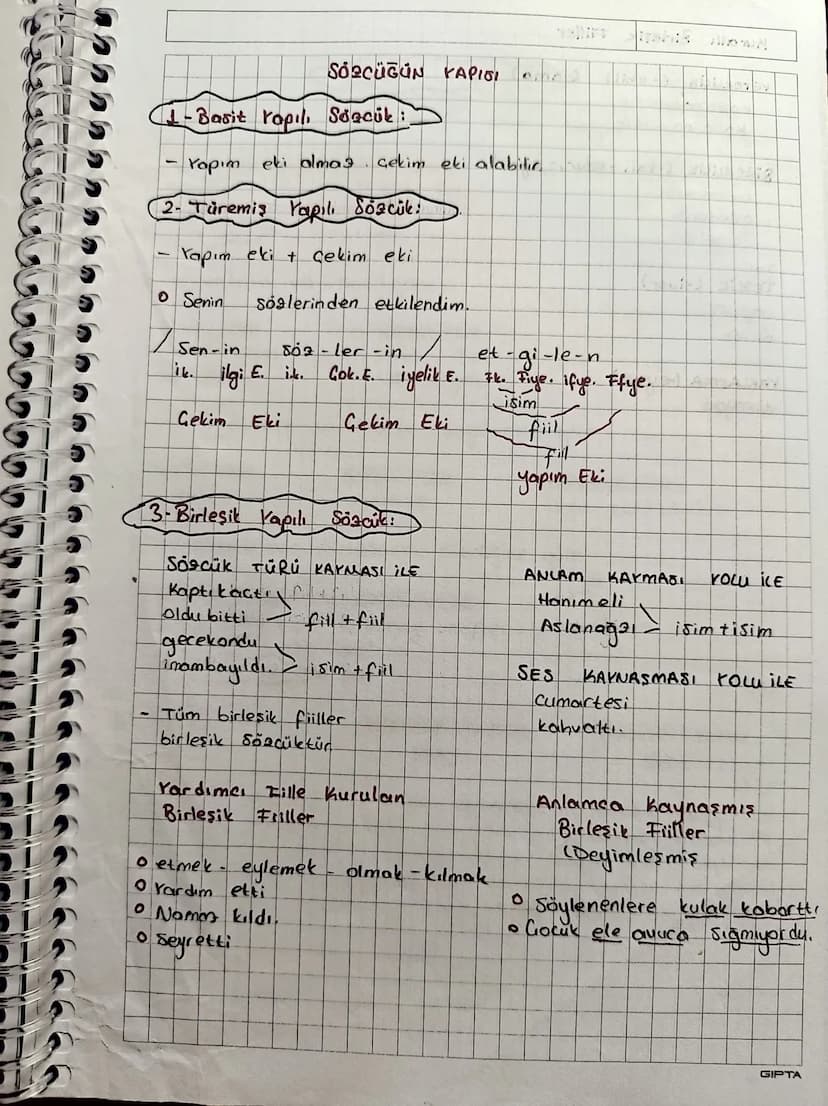 SÖZCÜĞÜN YAPISI
1-Basit Yapılı Sözcük:
- Yapım eki almaz. Çekim eki alabilir.
2- Türemiş Yapılı Sözcük:
- Yapım eki + Çekim eki
o Senin sözlerinden etkilendim.
/ Sen-in söz-ler-in / et-gi-le-n
ik. ilgi E. ik. Çok.E. iyelik E. Fk. Fiye. ifye. Ffye.
isim
Çekim Eki Çekim Eki fiil
fiil
yapım Eki
3-Birleşik Yapılı Sözcük:
SÖZCÜK TÜRÜ KAYMASI İLE
Kaptıkactı
oldu bitti fiil + fiil
gecekondu
imambayıldı. isim + fiil
- Tüm birleşik fiiller
birleşik sözcüktür
ANLAM KAYMASI YOLU İLE
Hanımeli
Aslanağzı isim + isim
SES KAYNAŞMASI YOLU İLE
Cumartesi
kahvaltı.
Yardımcı Fiille Kurulan
Birleşik Fiiller
o etmek - eylemek - olmak - kılmak
o Yardım etti
o Namaz kıldı.
o seyretti
Anlamca Kaynaşmış
Birleşik Fiiller
(Deyimleşmiş
o Söylenenlere kulak kabarttı
o Çocuk ele avuca sığmıyordu.
GIPTA